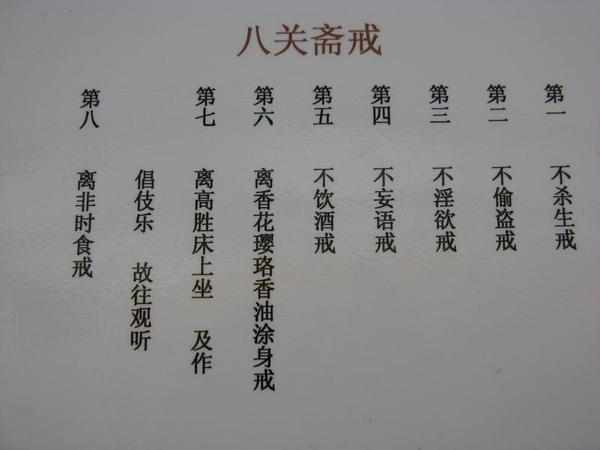 八关斋戒
第一 不杀生戒
第二 不偷盗戒
第三 不淫欲戒
第四 不妄语戒
第五 不饮酒戒
第六 离香花璎珞香油涂身戒
第七 离高胜床上坐 及作
倡伎乐 故往观听
第八 离非时食戒